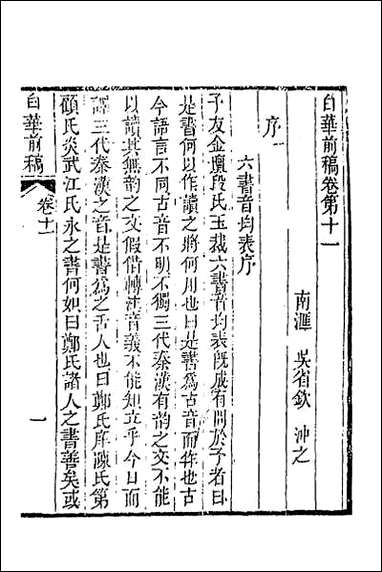 白華前稿卷第十一
南滙 吳省欽 沖之
序
六書音均表序
予友金壇段氏玉裁六書音均表旣成有問於予者曰
是書何以作讀之將何用也曰是書爲古音而作也古
今語言不同古音不明不獨三代秦漢有韵之文不能
以讀其無韵之文假借轉注音義不能知立乎今日而
譯三代秦漢之音是書爲之舌人也曰鄭氏庠陳氏第
顧氏炎武江氏永之書何如曰鄭氏諸人之書善矣或
白華前稿
卷十一
一